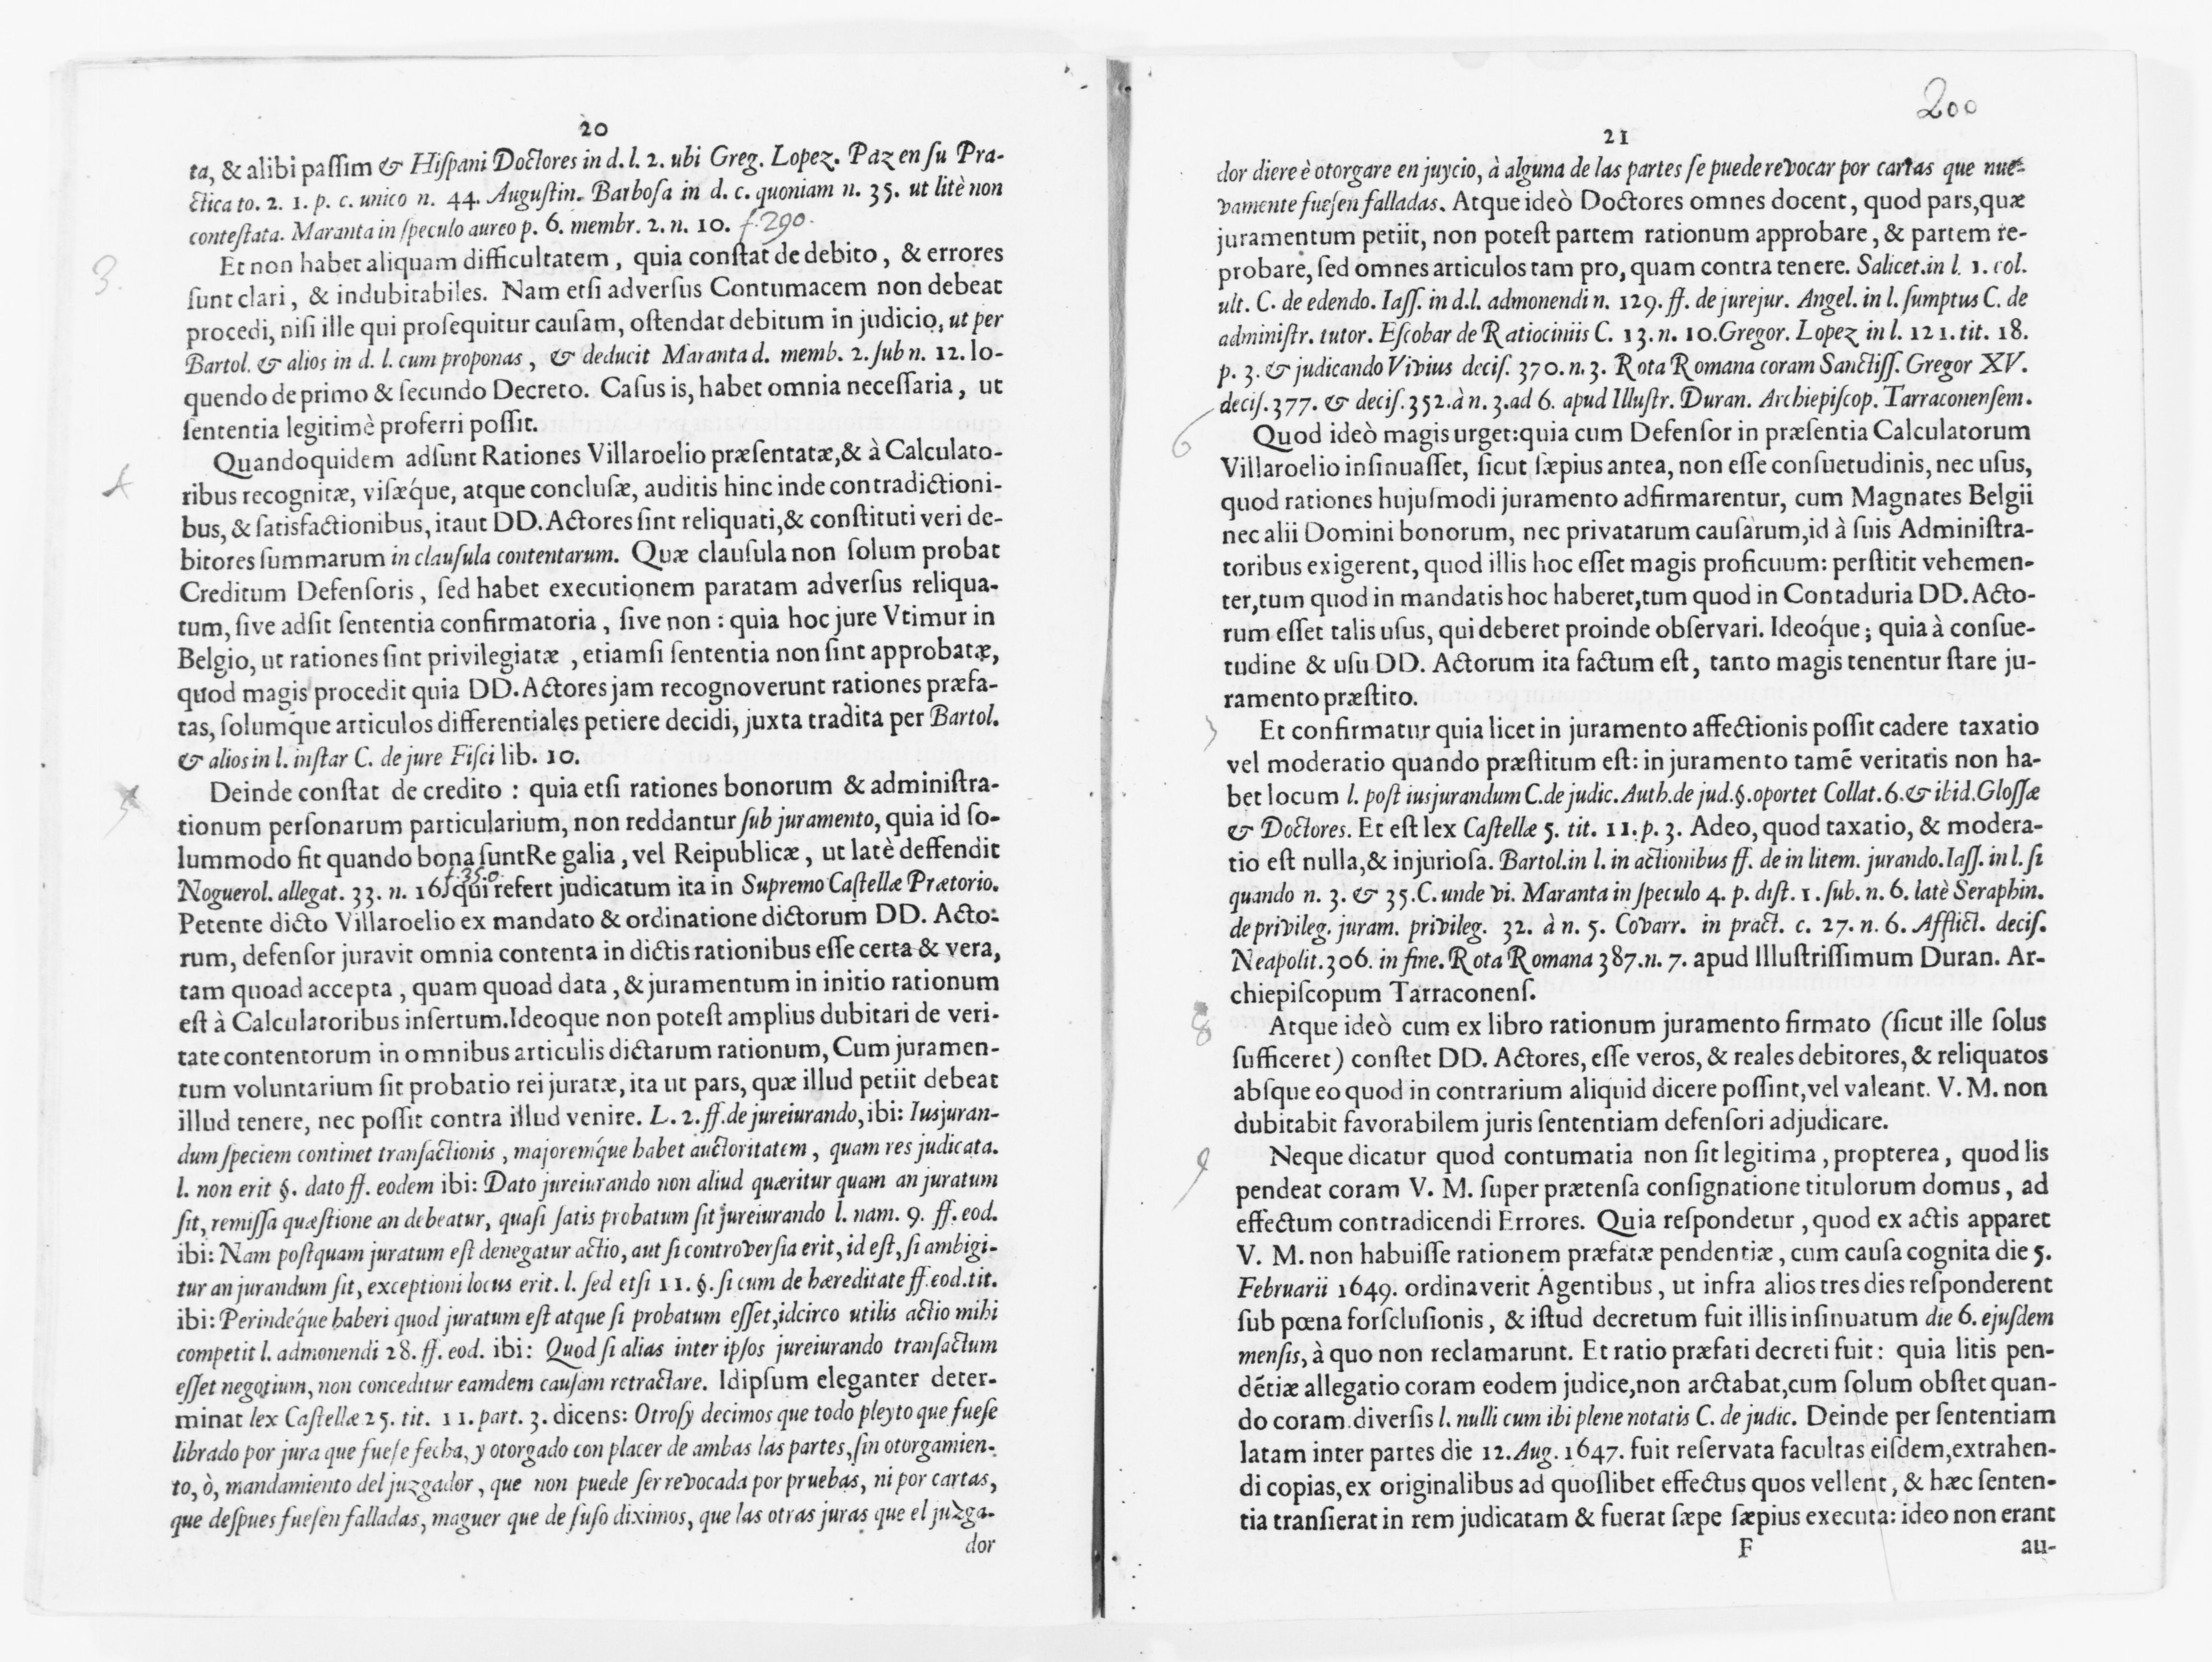 20
ta, & alibi passim & Hispani Doctores in d. l. 2. ubi Greg. Lopez. Paz en su Pra-
ctica to. 2. 1. p. c. unico n. 44. Augustin. Barbosa in d. c. quoniam n. 35. ut litè non
contestata. Maranta in speculo aureo p. 6. membr. 2. n. 10. f. 290.
3.
Et non habet aliquam difficultatem, quia constat de debito, & errores
sunt clari, & indubitabiles. Nam etsi adversus Contumacem non debeat
procedi, nisi ille qui prosequitur causam, ostendat debitum in judicio, ut per
Bartol. & alios in d. l. cum proponas, & deducit Maranta d. memb. 2. sub n. 12. lo-
quendo de primo & secundo Decreto. Casus is, habet omnia necessaria, ut
sententia legitimè proferri possit.
4
Quandoquidem adsunt Rationes Villaroelio præsentatæ, & à Calculato-
ribus recognitæ, visæque, atque conclusæ, auditis hinc inde contradictioni-
bus, & satisfactionibus, itaut DD. Actores sint reliquati, & constituti veri de-
bitores summarum in clausula contentarum. Quæ clausula non solum probat
Creditum Defensoris, sed habet executionem paratam adversus reliqua-
tum, sive adsit sententia confirmatoria, sive non: quia hoc jure Vtimur in
Belgio, ut rationes sint privilegiatæ, etiamsi sententia non sint approbatæ,
quod magis procedit quia DD. Actores jam recognoverunt rationes præfa-
tas, solumque articulos differentiales petiere decidi, juxta tradita per Bartol.
& alios in l. instar C. de jure Fisci lib. 10.
5
Deinde constat de credito: quia etsi rationes bonorum & administra-
tionum personarum particularium, non reddantur sub juramento, quia id so-
lummodo fit quando bona sunt Re galia, vel Reipublicæ, ut latè deffendit
f. 350.
Noguerol. allegat. 33. n. 16. qui refert judicatum ita in Supremo Castellæ Prætorio.
Petente dicto Villaroelio ex mandato & ordinatione dictorum DD. Acto-
rum, defensor juravit omnia contenta in dictis rationibus esse certa & vera,
tam quoad accepta, quam quoad data, & juramentum in initio rationum
est à Calculatoribus insertum. Ideoque non potest amplius dubitari de veri-
tate contentorum in omnibus articulis dictarum rationum, Cum juramen-
tum voluntarium sit probatio rei juratæ, ita ut pars, quæ illud petiit debeat
illud tenere, nec possit contra illud venire. L. 2. ff. de jureiurando, ibi: Iusjuran-
dum speciem continet transactionis, majoremque habet auctoritatem, quam res judicata.
l. non erit §. dato ff. eodem ibi: Dato jureiurando non aliud quæritur quam an juratum
sit, remissa quæstione an debeatur, quasi satis probatum sit jureiurando l. nam. 9. ff. eod.
ibi: Nam postquam juratum est denegatur actio, aut si controversia erit, id est, si ambigi-
tur an jurandum sit, exceptioni locus erit. l. sed etsi 11. §. si cum de hæreditate ff. eod. tit.
ibi: Perindéque haberi quod juratum est atque si probatum esset, idcirco utilis actio mihi
competit l. admonendi 28. ff. eod. ibi: Quod si alias inter ipsos jureiurando transactum
esset negotium, non conceditur eamdem causam retractare. Idipsum eleganter deter-
minat lex Castellæ 25. tit. 11. part. 3. dicens: Otrosy decimos que todo pleyto que fuese
librado por jura que fuese fecha, y otorgado con placer de ambas las partes, sin otorgamien-
to, ò, mandamiento del juzgador, que non puede ser revocada por pruebas, ni por cartas,
que despues fuesen falladas, maguer que de suso diximos, que las otras juras que el juzga-
dor
200
21
dor diere è otorgare en juycio, à alguna de las partes se puede revocar por cartas que nue-
vamente fuesen falladas. Atque ideò Doctores omnes docent, quod pars, quæ
juramentum petiit, non potest partem rationum approbare, & partem re-
probare, sed omnes articulos tam pro, quam contra tenere. Salicet. in l. 1. col.
ult. C. de edendo. Iass. in d. l. admonendi n. 129. ff. de jurejur. Angel. in l. sumptus C. de
administr. tutor. Escobar de Ratiociniis C. 13. n. 10. Gregor. Lopez in l. 121. tit. 18.
p. 3. & judicando Vivius decis. 370. n. 3. Rota Romana coram Sanctiss. Gregor XV.
decis. 377. & decis. 352. à n. 3. ad 6. apud Illustr. Duran. Archiepiscop. Tarraconensem.
6
Quod ideò magis urget: quia cum Defensor in præsentia Calculatorum
Villaroelio insinuasset, sicut sæpius antea, non esse consuetudinis, nec usus,
quod rationes hujusmodi juramento adfirmarentur, cum Magnates Belgii
nec alii Domini bonorum, nec privatarum causarum, id à suis Administra-
toribus exigerent, quod illis hoc esset magis proficuum: perstitit vehemen-
ter, tum quod in mandatis hoc haberet, tum quod in Contaduria DD. Acto-
rum esset talis usus, qui deberet proinde observari. Ideóque; quia à consue-
tudine & usu DD. Actorum ita factum est, tanto magis tenentur stare ju-
ramento præstito.
Et confirmatur quia licet in juramento affectionis possit cadere taxatio
vel moderatio quando præstitum est: in juramento tamē veritatis non ha-
bet locum l. post iusjurandum C. de judic. Auth. de jud. §. oportet Collat. 6. & ibid. Glossæ
& Doctores. Et est lex Castellæ 5. tit. 11. p. 3. Adeo, quod taxatio, & modera-
tio est nulla, & injuriosa. Bartol. in l. in actionibus ff. de in litem. jurando. Iass. in l. si
quando n. 3. & 35. C. unde vi. Maranta in speculo 4. p. dist. 1. sub. n. 6. latè Seraphin.
de privileg. juram. privileg. 32. à n. 5. Covarr. in pract. c. 27. n. 6. Afflict. decis.
Neapolit. 306. in fine. Rota Romana 387. n. 7. apud Illustrissimum Duran. Ar-
chiepiscopum Tarraconens.
8
Atque ideò cum ex libro rationum juramento firmato (sicut ille solus
sufficeret) constet DD. Actores, esse veros, & reales debitores, & reliquatos
absque eo quod in contrarium aliquid dicere possint, vel valeant. V. M. non
dubitabit favorabilem juris sententiam defensori adjudicare.
9
Neque dicatur quod contumatia non sit legitima, propterea, quod lis
pendeat coram V. M. super prætensa consignatione titulorum domus, ad
effectum contradicendi Errores. Quia respondetur, quod ex actis apparet
V. M. non habuisse rationem præfatæ pendentiæ, cum causa cognita die 5.
Februarii 1649. ordinaverit Agentibus, ut infra alios tres dies responderent
sub pœna forsclusionis, & istud decretum fuit illis insinuatum die 6. ejusdem
mensis, à quo non reclamarunt. Et ratio præfati decreti fuit: quia litis pen-
dētiæ allegatio coram eodem judice, non arctabat, cum solum obstet quan-
do coram diversis l. nulli cum ibi plene notatis C. de judic. Deinde per sententiam
latam inter partes die 12. Aug. 1647. fuit reservata facultas eisdem, extrahen-
di copias, ex originalibus ad quoslibet effectus quos vellent, & hæc senten-
tia transierat in rem judicatam & fuerat sæpe sæpius executa: ideo non erant
F
au-